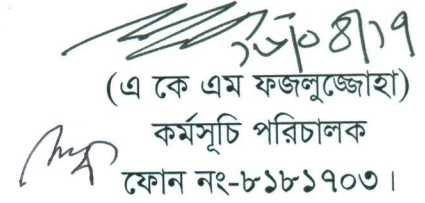 (এ কে এম ফজলুজ্জোহা)
কর্মসূচি পরিচালক
ফোন নং-৮১৮১৭০৩।